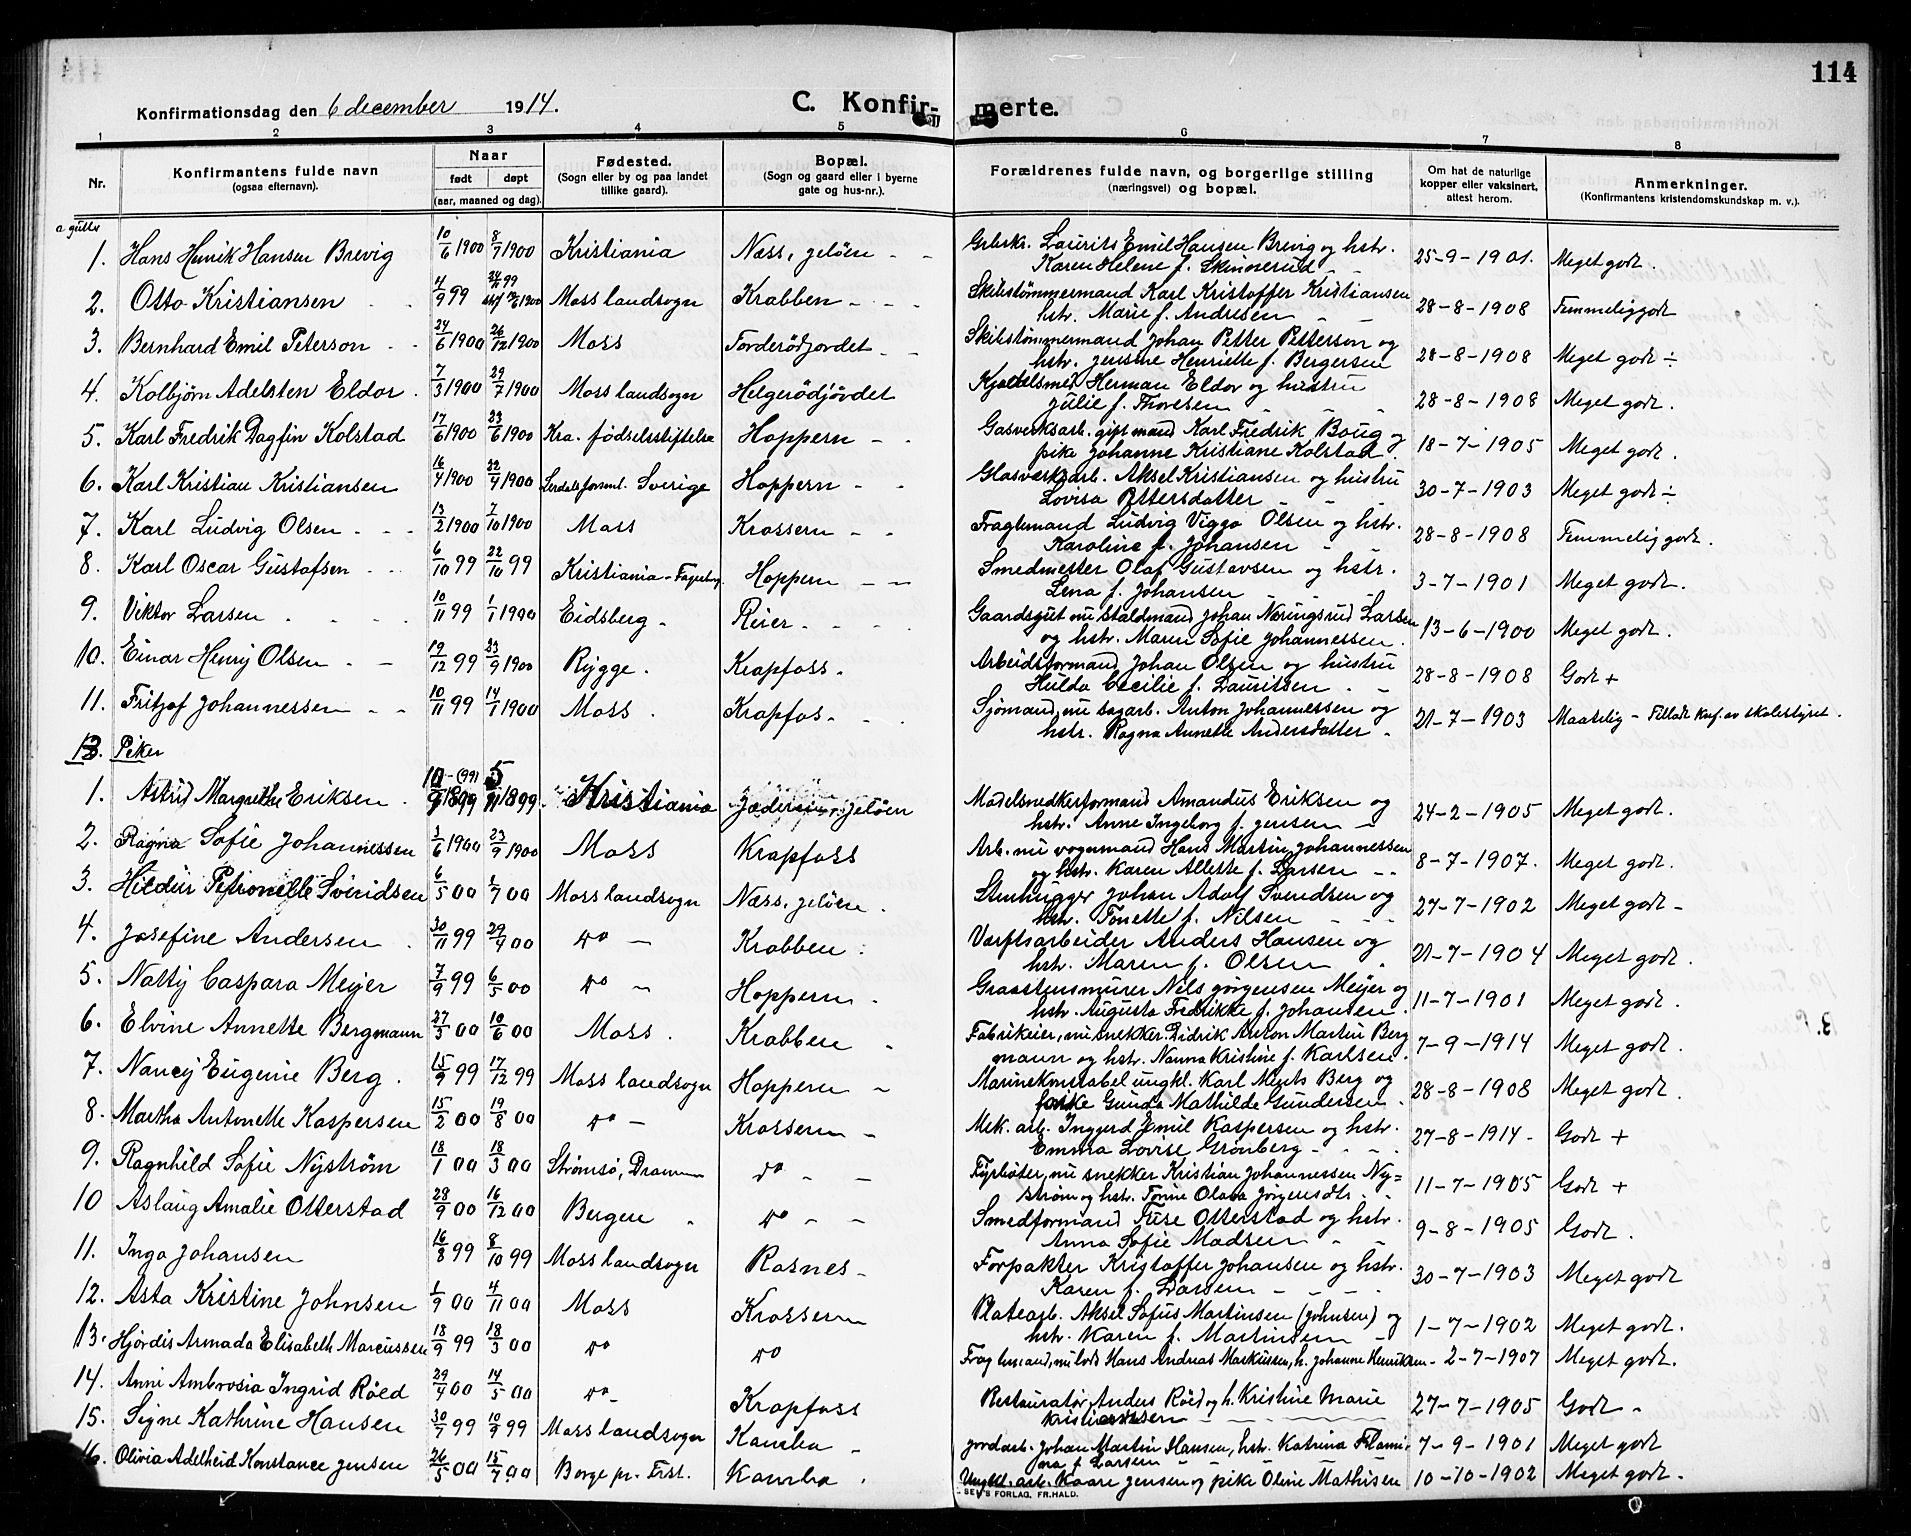 114
Konfirmationsdag den 6 december 1914.
C. Konfirmerte.
1 2 3 4 5 6 7 8
Nr.
Konfirmantens fulde navn
(ogsaa efternavn).
Naar
født døpt
(aar, maaned og dag).
Fødested.
(Sogn eller by og paa landet
tillike gaard).
Bopæl.
(Sogn og gaard eller i byerne
gate og hus-nr.).
Forældrenes fulde navn, og borgerlige stilling
(næringsvei) og bopæl.
Om hat de naturlige
kopper eller vaksinert,
attest herom.
Anmerkninger.
(Konfirmantens kristendomskundskap m. v.).
a gutter
1. Hans Henrik Hansen Brevig 10/6 1900 8/7 1900 Kristiania Næss, Jeløen Laurits Emil Hansen Brevig og hstr. 25-9-1901. Meget godt.
Karen Helene f. Skinnerud
2. Otto Kristiansen 4/9 99 Moss landsogn Krabben Skibstømmermand Karl Kristoffer Kristiansen 28-8-1908 Temmelig godt
hstr. Marie f. Andresen
3. Bernhard Emil Peterson 24/6 1900 26/12 1900 Moss Forderødjordet Skibstømmermand Johan Petter Petterson og 28-8-1908 Meget godt ÷
hstr. Jensine Henriette f. Bergersen
4. Kolbjørn Adelsten Eldor 7/3 1900 29/7 1900 Moss landsogn Helgerødjordet Kjedelsmed Herman Eldor og hustru 28-8-1908 Meget godt.
Julie f. Thoresen
5. Karl Fredrik Dagfin Kolstad 17/6 1900 23/6 1900 Kra. fødselsstiftelse Hoppern Gasverksarb. gift mand Karl Fredrik Boug og 18-7-1905 Meget godt.
pike Johanne Kristiane Kolstad
6. Karl Kristian Kristiansen 16/4 1900 22/4 1900 Sverige Hoppern Glasværksarb. Aksel Kristiansen og hustru 30-7-1903 Meget godt ÷
Lovisa Pettersdatter
7. Karl Ludvig Olsen 13/2 1900 7/10 1900 Moss Krossern Fragtemand Ludvig Viggo Olsen og hstr. 28-8-1908 Temmelig godt.
Karoline f. Johansen
8. Karl Oscar Gustafsen 6/10 99 22/10 99 Kristiania - Fagerborg Hoppern Smedmester Olaf Gustavsen og hstr. 3-7-1901 Meget godt.
Lena f. Johansen
9. Viktor Larsen 10/11 99 1/1 1900 Eidsberg Reier Gaardsgut nu staldmand Johan Næringsrud Larsen 13-6-1900 Meget godt.
og hstr. Maren Sofie Johannessen
10. Einar Henry Olsen 19/12 99 23/9 1900 Rygge. Krapfoss. Arbeidsformand Johan Olsen og hustru 28-8-1908 Godt +
Hulda Cecilie f. Lauritsen
11. Fritjof Johannessen 10/11 99 14/1 1900 Moss. Krapfos Sjømand, nu sagarb. Anton Johannessen og 21-7-1903 Maatelig - Tilladt knf. av skolestyret.
hstr. Ragna Annette Andersdatter
B. Piker
1. Astrid Margrethe Eriksen Kristiania Jeløen Modelsnedkerformand Amandus Eriksen og 24-2-1905 Meget godt.
hstr. Anne Ingeborg f. Jensen
2. Ragna Sofie Johannessen 3/6 1900 23/9 1900 Moss Krapfoss Arb. nu vognmand Hans Martin Johannessen 8-7-1907. Meget godt.
og hstr. Karen Alette f. Larsen
3. Hildur Petronelle Svendsen 6/5 00 1/7 00 Moss landsogn Næss, Jeløen. Stenhugger Johan Adolf Svendsen og 27-7-1902 Meget godt
hstr. Tonette f. Nilsen
4. Josefine Andersen 30/11 99 29/4 00 Do Krabben Værftsarbeider Anders Hansen og 21-7-1904 Meget godt.
hstr. Maren f. Olsen
5. Natty Caspara Meyer 7/9 99 6/5 00 Do Hoppern Graastensmurer Nils Jørgensen Meyer og 11-7-1901 Meget godt.
hstr. Augusta Fredrikke f. Johansen
6. Elvine Annette Bergmann 27/3 00 10/6 00 Moss. Krabben Fabrikeier, nu snekker Didrik Anton Martin Berg 7-9-1914 Meget godt.
mann og hstr. Nanna Kristine f. Karlsen
7. Nancy Eugenie Berg. 15/9 99 17/12 99 Moss landsogn Hoppern Marinekonstabel ungkl. Karl Berg og 28-8-1908 Meget godt.
pike Gunda Mathilde Gundersen
8. Martha Antonette Kaspersen 15/2 00 19/8 00 Do Krossern Mek. arb. Inggerd Emil Kaspersen og hstr. 27-8-1914 Godt +
Emma Lovise Grønberg
9. Ragnhild Sofie Nystrøm 18/1 00 18/3 00 Strømsø, Drammen Do Fyrbøter, nu snekker Kristian Johannessen Ny= 11-7-1905 Godt +
strøm og hstr. Tonine Olava Jørgensdtr.
10 Aslaug Amalie Otterstad 28/9 00 16/12 00 Bergen Do Smedformand Otterstad og hstr. 9-8-1905 Godt.
Anna Sofie Madsen
11. Inga Johansen 16/8 99 8/10 99 Moss landsogn Rosnes Forpakter Kristoffer Johansen og hstr. 30-7-1903 Meget godt
Karen f. Larsen
12. Asta Kristine Johnsen 1/9 00 4/11 00 Moss Krossern Platearb. Aksel Sofus Martinsen (Johnsen) og 1-7-1902 Meget godt.
hstr. Karen f. Martinsen
13. Hjørdis Armada Elisabeth Marcussen 18/9 99 18/3 00 Do Do Fragtemand, nu lods Hans Andreas Markussen, h. Johanne Henriksen 2-7-1907 Meget godt.
14. Anni Ambrosia Ingrid Røed 29/4 00 14/5 00 Do Krapfoss Restauratør Anders Røed og h. Kristine Marie 27-7-1905 Godt
Kristiansen
15. Signe Kathrine Hansen 30/7 99 10/9 99 Moss landsogn Kambo Jordarb. Johan Martin Hansen, hstr. Katrina Flami- 7-9-1901 Meget godt
na f. Larsen
16. Olivia Adelheid Konstance Jensen 26/5 00 15/7 00 Borge pr. Frst. Kambo Ungkl. arb. Kaare Jensen og pike Oline Mathisen 10-10-1902 Meget godt
SEM'S FORLAG, FR.HALD.